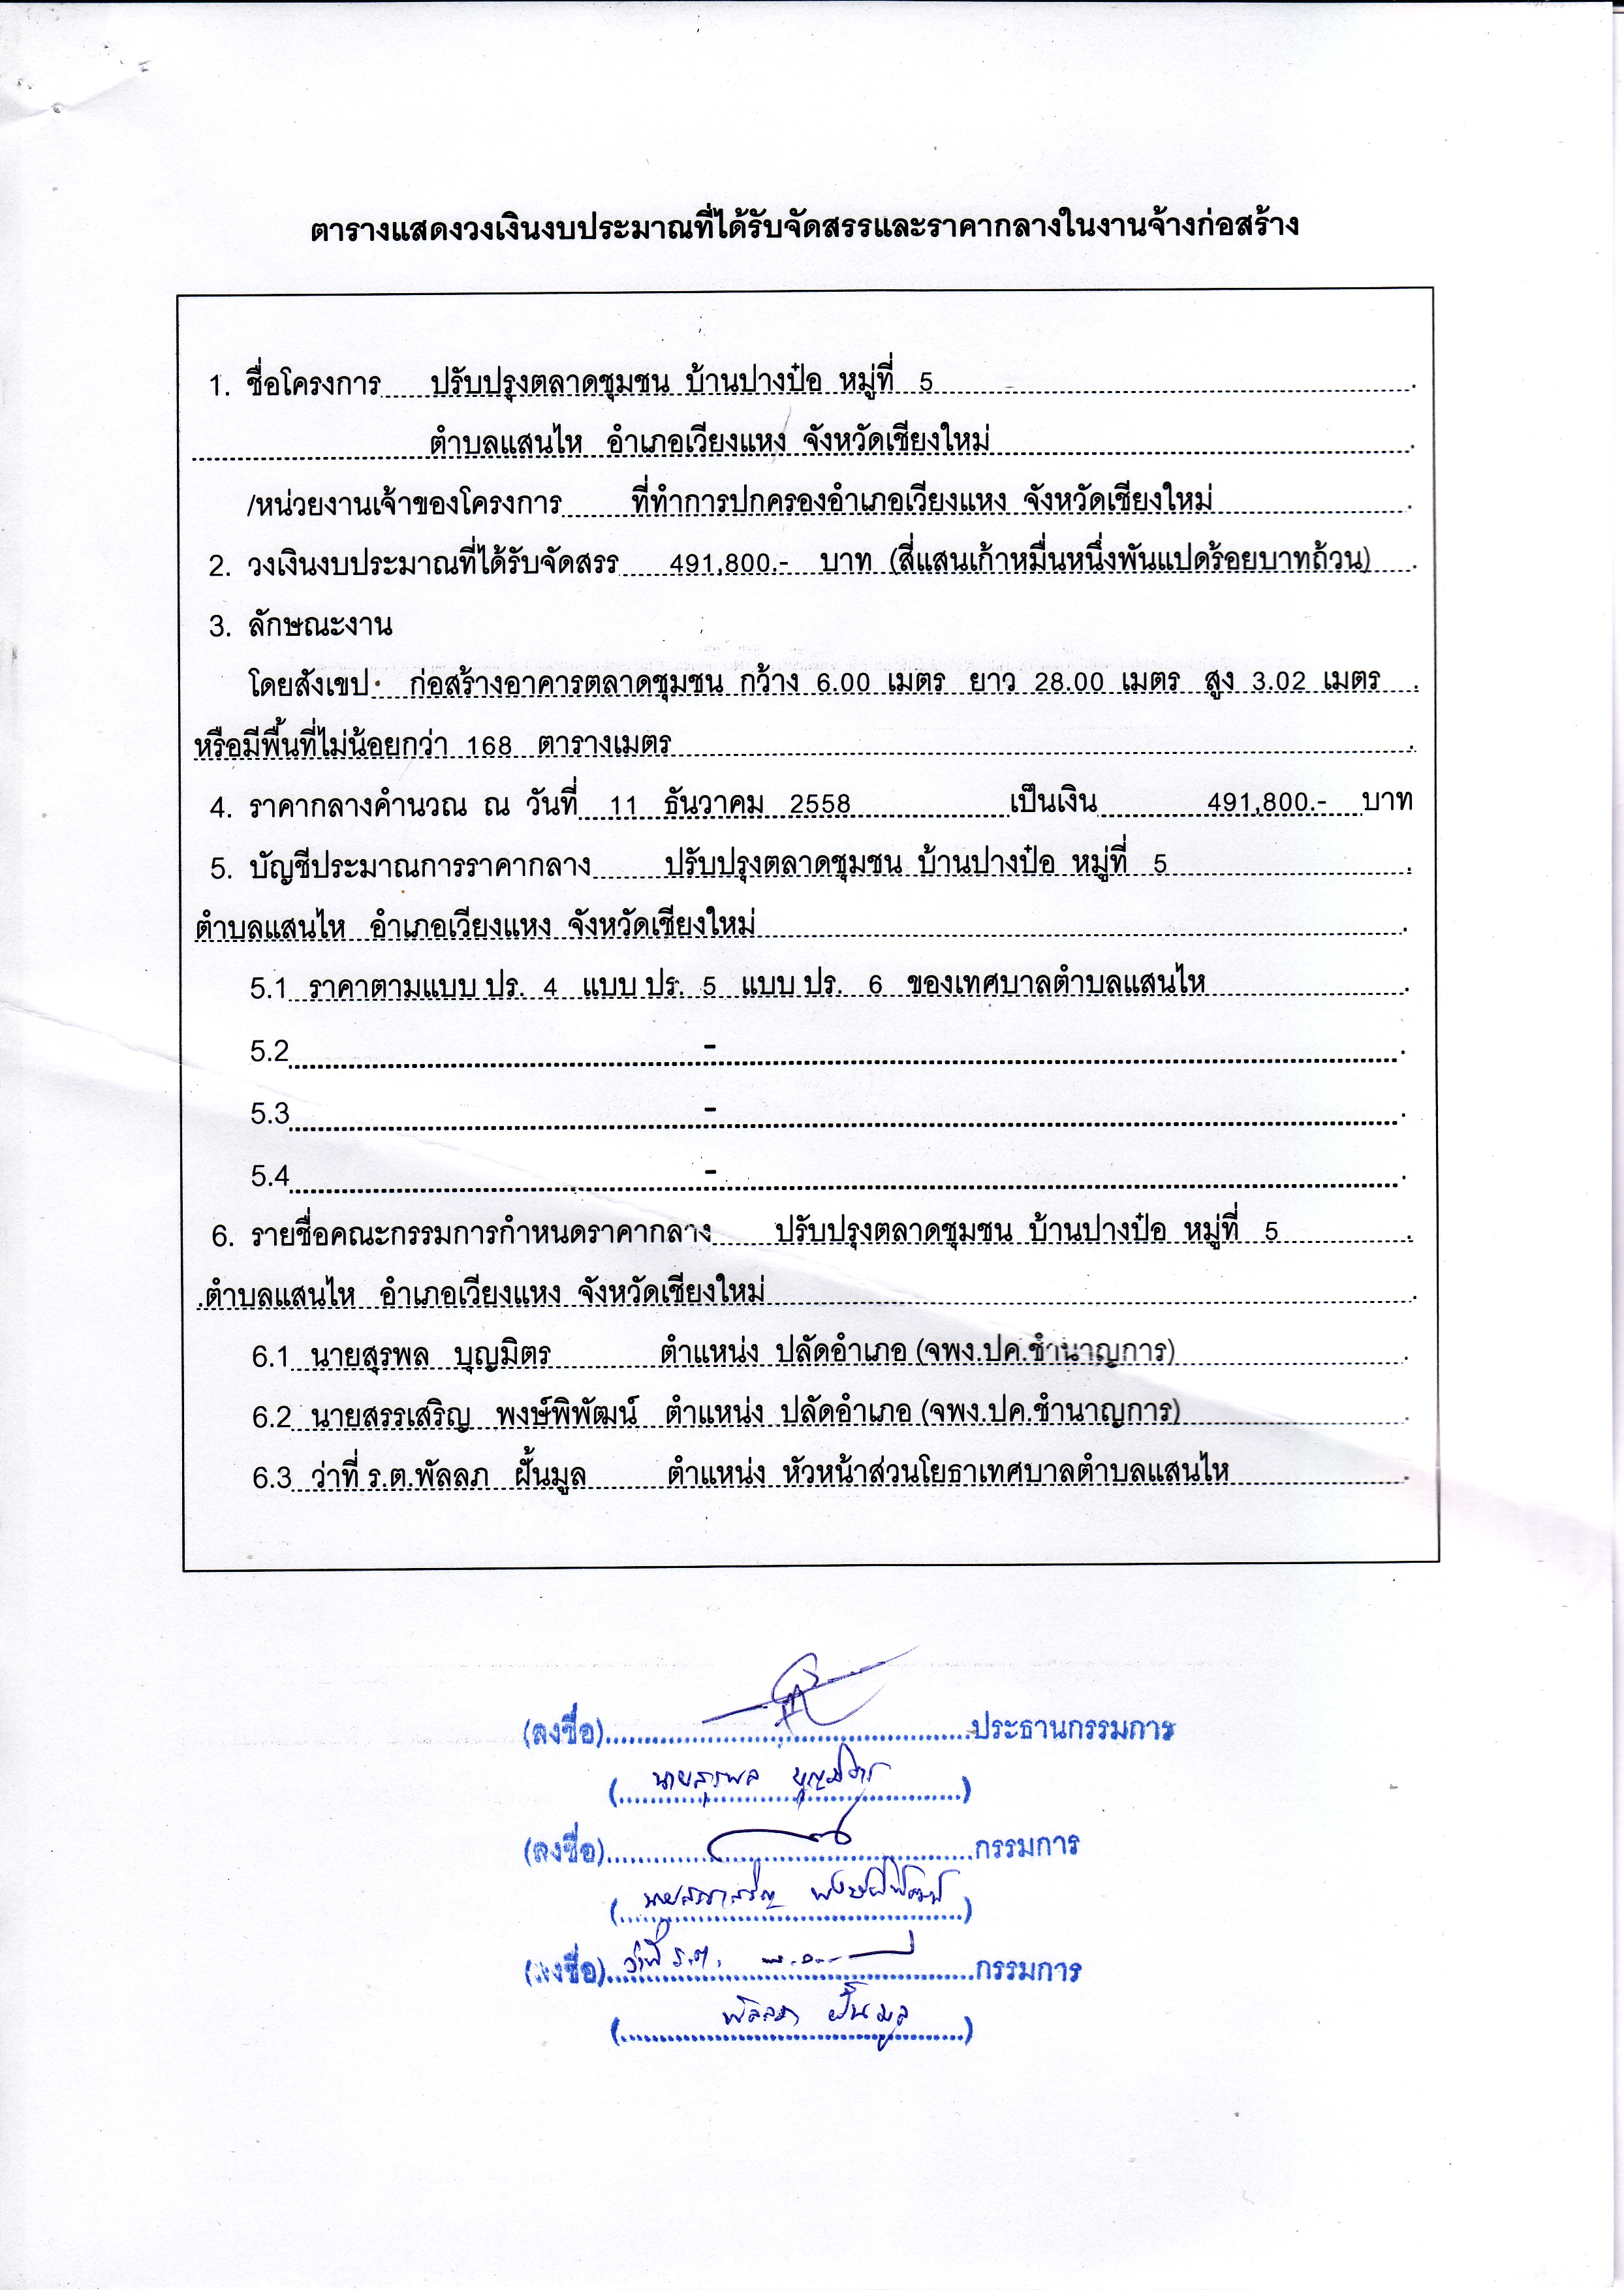 ตารางแสดงวงเงินงบประมาณที่ได้รับจัดสรรและราคากลางในงานจ้างก่อสร้าง
1. ชื่อโครงการ ปรับปรุงตลาดชุมชน บ้านปางป๋อ หมู่ที่ 5
ตำบลแสนไห อำเภอเวียงแหง จังหวัดเชียงใหม่
/หน่วยงานเจ้าของโครงการ ที่ทำการปกครองอำเภอเวียงแหง จังหวัดเชียงใหม่
2. วงเงินงบประมาณที่ได้รับจัดสรร 491,800.- บาท (สี่แสนเก้าหมื่นหนึ่งพันแปดร้อยบาทถ้วน)
3. ลักษณะงาน
โดยสังเขป ก่อสร้างอาคารตลาดชุมชน กว้าง 6.00 เมตร ยาว 28.00 เมตร สูง 3.02 เมตร
หรือมีพื้นที่ไม่น้อยกว่า 168 ตารางเมตร
4. ราคากลางคำนวณ ณ วันที่ 11 ธันวาคม 2558 เป็นเงิน 491,800.- บาท
5. บัญชีประมาณการราคากลาง ปรับปรุงตลาดชุมชน บ้านปางป๋อ หมู่ที่ 5
ตำบลแสนไห อำเภอเวียงแหง จังหวัดเชียงใหม่
5.1 ราคาตามแบบ ปร. 4 แบบ ปร. 5 แบบ ปร. 6 ของเทศบาลตำบลแสนไห
5.2 -
5.3 -
5.4 -
6. รายชื่อคณะกรรมการกำหนดราคากลาง ปรับปรุงตลาดชุมชน บ้านปางป๋อ หมู่ที่ 5
ตำบลแสนไห อำเภอเวียงแหง จังหวัดเชียงใหม่
6.1 นายสุรพล บุญมิตร ตำแหน่ง ปลัดอำเภอ (จพง.ปค.ชำนาญการ)
6.2 นายสรรเสริญ พงษ์พิพัฒน์ ตำแหน่ง ปลัดอำเภอ (จพง.ปค.ชำนาญการ)
6.3 ว่าที่ ร.ต.พัลลภ ฝั้นมูล ตำแหน่ง หัวหน้าส่วนโยธาเทศบาลตำบลแสนไห
(ลงชื่อ) ประธานกรรมการ
(นายสุรพล บุญมิตร)
(ลงชื่อ) กรรมการ
(นายสรรเสริญ พงษ์พิพัฒน์)
(ลงชื่อ) ว่าที่ ร.ต. กรรมการ
(พัลลภ ฝั้นมูล)